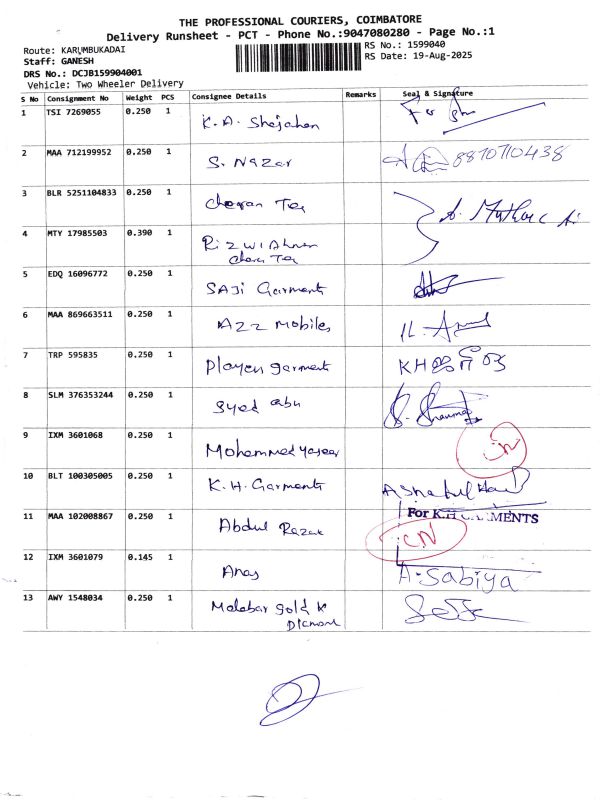 THE PROFESSIONAL COURIERS, COIMBATORE
Delivery Runsheet - PCT - Phone No.:9047080280 - Page No.:1
Route: KARUMBUKADAI
RS No.: 1599040
Staff: GANESH
RS Date: 19-Aug-2025
DRS No.: DCJB159904001
Vehicle: Two Wheeler Delivery
S No Consignment No Weight PCS Consignee Details Remarks Seal & Signature
1 TSI 7269055 0.250 1 K.A. Shajahan
2 MAA 712199952 0.250 1 S. Nazar 8870710438
3 BLR 5251104833 0.250 1 Tea
4 MTY 17985503 0.390 1
Tea
5 EDQ 16096772 0.250 1 SAJI Garments
6 MAA 869663511 0.250 1 AZZ Mobiles
7 TRP 595835 0.250 1 Players garments
8 SLM 376353244 0.250 1 Syed abu
9 IXM 3601068 0.250 1 Mohammed yaseer
10 BLT 100305005 0.250 1 K.H. Garments
For K.H GARMENTS
11 MAA 102008867 0.250 1 Abdul Razak CN
12 IXM 3601079 0.145 1 Anas A. Sabiya
13 AWY 1548034 0.250 1 Malabar gold &
Diamond